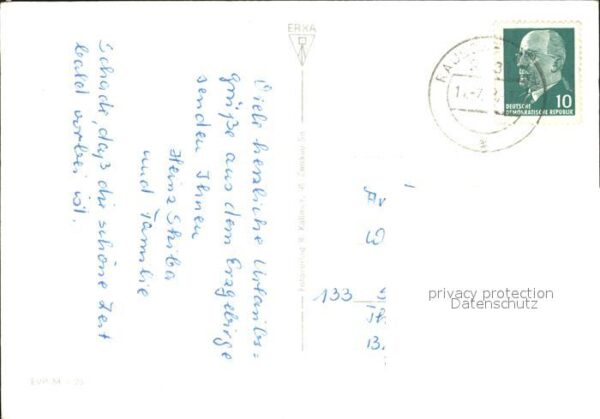 ERKA
Viele herzliche Urlaubs=
grüße aus dem Erzgebirge
senden Ihnen
Heinz
und Familie
Schade, daß die schöne Zeit
bald vorbei ist.
DEUTSCHE
DEMOKRATISCHE REPUBLIK
10
Ar
W
133 S
B.
privacy protection
Datenschutz